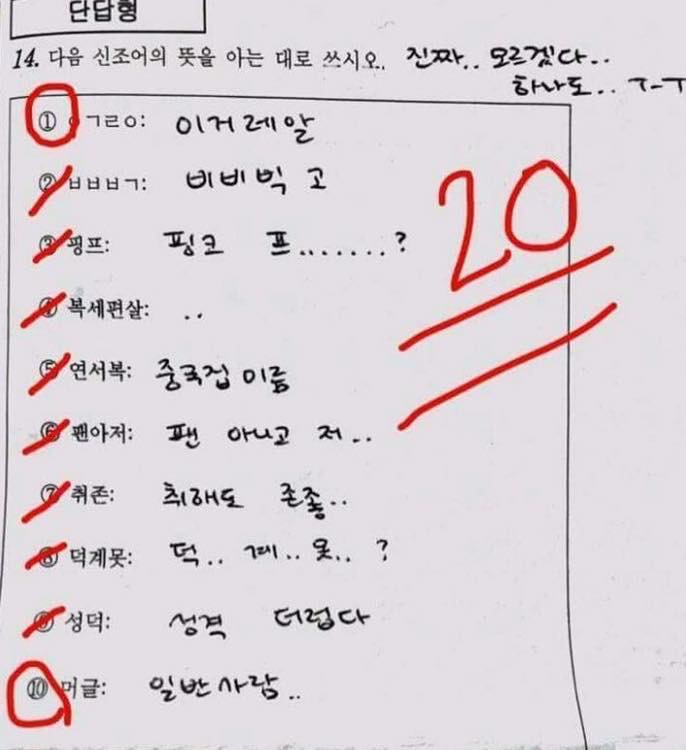 단답형
14. 다음 신조어의 뜻을 아는 대로 쓰시오. 진짜.. 모르겠다..
하나도.. ㅜ-ㅜ
① ㅇㄱㄹㅇ: 이거레알
② ㅂㅂㅂㄱ: 비비빅 고
③ 핑프: 핑코 프.......?
④ 복세편살: ..
⑤ 연서복: 중국집 이름
⑥ 팬아저: 팬 아니고 저..
⑦ 취존: 취해도 존좋..
⑧ 덕계못: 덕.. 계.. 못.. ?
⑨ 성덕: 성격 더럽다
⑩ 머글: 일반사람..
20